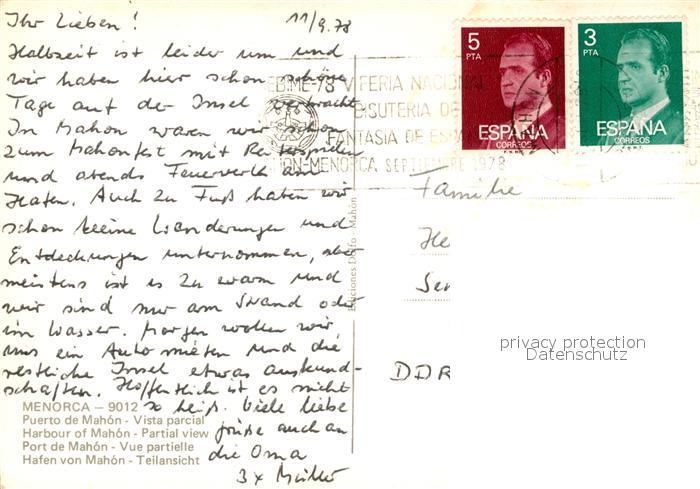 Ihr Lieben! 11/9.78
Halbzeit ist leider um und
wir haben hier schon schöne
Tage auf der Insel verbracht
In Mahon waren wir schon
zum Mahonfest mit Reiterspielen
und abends Feuerwerk am
Hafen. Auch zu Fuß haben wir
schon kleine Wanderungen und
Entdeckungen unternommen, aber
meistens ist es zu warm und
wir sind nur am Strand oder
im Wasser. Morgen wollen wir
uns ein Auto mieten und die
restliche Insel etwas auskund-
schaften. Hoffentlich ist es nicht
so heiß. Viele liebe
Grüße auch an
die Oma
3x Müller
MENORCA – 9012
Puerto de Mahón - Vista parcial
Harbour of Mahón - Partial view
Port de Mahón - Vue partielle
Hafen von Mahón - Teilansicht
Ediciones - Mahón
EBIME-78 V FERIA NACIONAL
BISUTERIA DE
FANTASIA DE ESPAÑA
MAHON-MENORCA SEPTIEMBRE 1978
5
PTA
ESPAÑA
CORREOS
3
PTA
ESPAÑA
CORREOS
Familie
He
DDR
privacy protection
Datenschutz